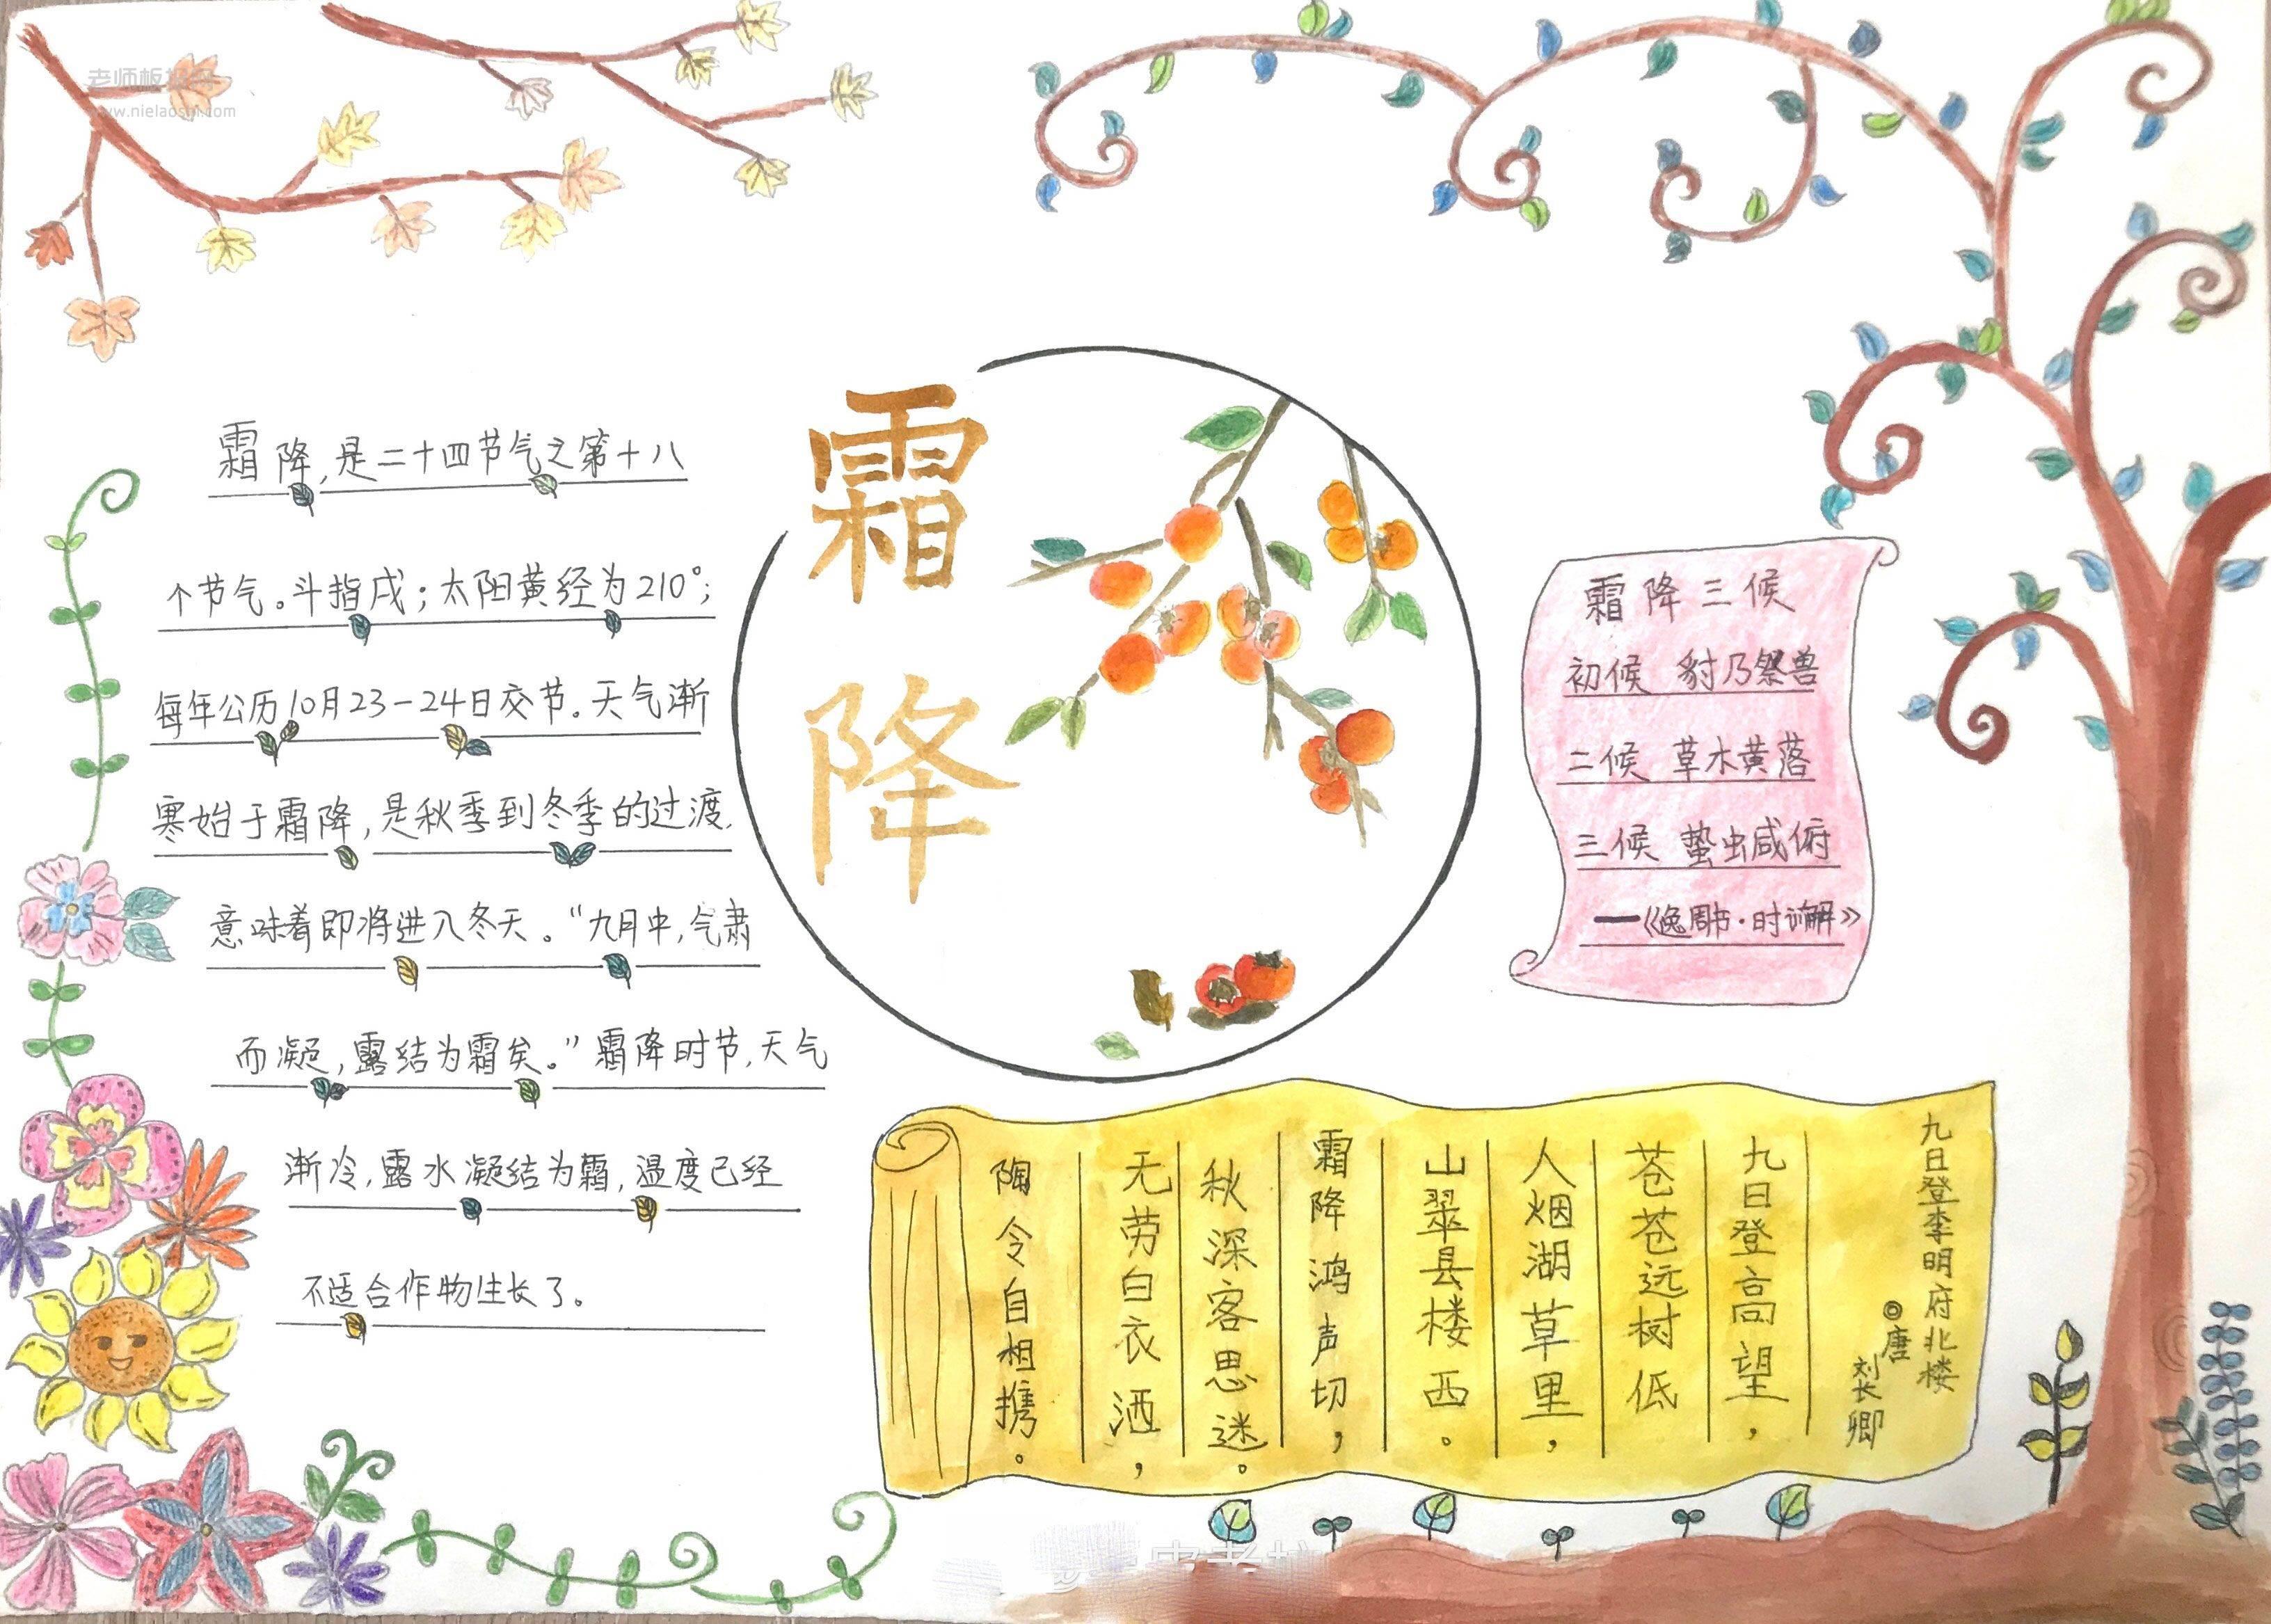 霜降
霜降,是二十四节气之第十八
个节气。斗指戌;太阳黄经为210°;
每年公历10月23-24日交节。天气渐
寒始于霜降,是秋季到冬季的过渡,
意味着即将进入冬天。“九月中,气肃
而凝,露结为霜矣。”霜降时节,天气
渐冷,露水凝结为霜,温度已经
不适合作物生长了。
霜降三候
初候 豺乃祭兽
二候 草木黄落
三候 蛰虫咸俯
—《逸周书·时训解》
九日登李明府北楼
◎唐
刘长卿
九日登高望,
苍苍远树低
人烟湖草里,
山翠县楼西。
霜降鸿声切,
秋深客思迷。
无劳白衣酒,
陶令自相携。
www.nielaoshi.com